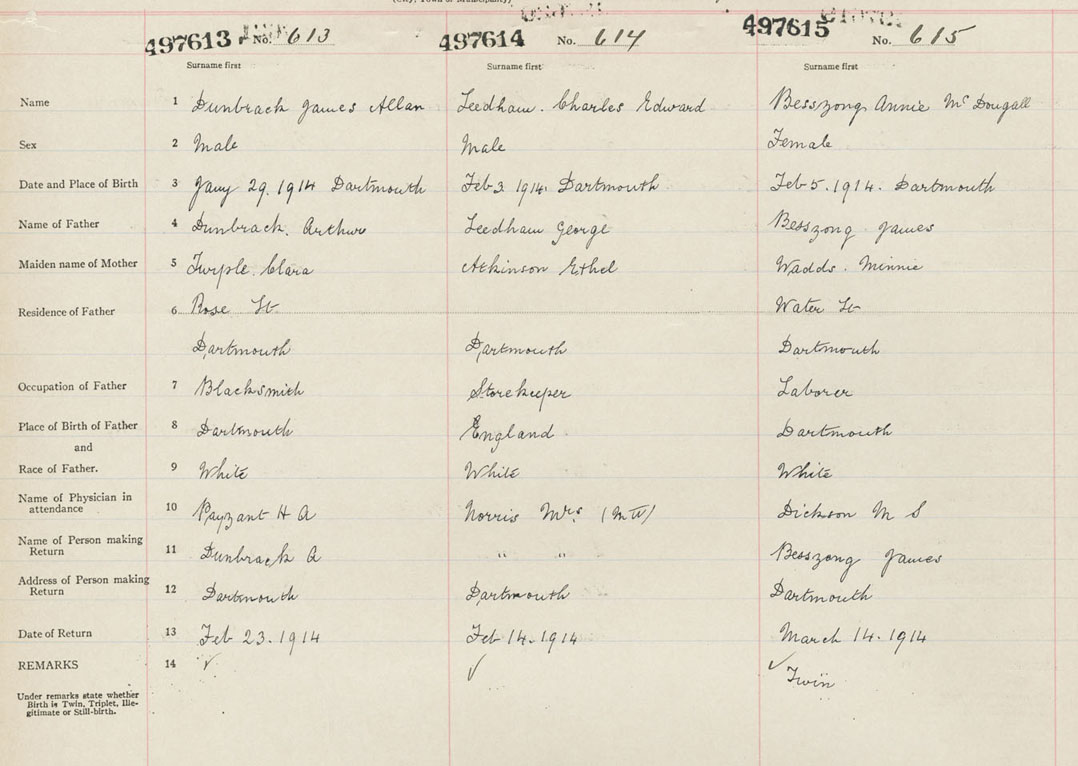 (City, Town or Municipality)
497613 No. 613 497614 No. 614 497615 No. 615
Surname first Surname first Surname first
Name 1 Dunbrack James Allan Leedham. Charles Edward Besszong Annie McDougall
Sex 2 Male Male Female
Date and Place of Birth 3 Jany 29. 1914 Dartmouth Feb 3 1914. Dartmouth Feb 5. 1914. Dartmouth
Name of Father 4 Dunbrack. Arthur Leedham George Besszong James
Maiden name of Mother 5 Turple. Clara Atkinson Ethel Wadds. Minnie
Residence of Father 6 Rose St Water St
Dartmouth Dartmouth Dartmouth
Occupation of Father 7 Blacksmith Storekeeper Laborer
Place of Birth of Father 8 Dartmouth England Dartmouth
and
Race of Father. 9 White White White
Name of Physician in
attendance 10 Payzant H A Norris Mrs (MW) Dickson M S
Name of Person making
Return 11 Dunbrack A " " Besszong James
Address of Person making
Return 12 Dartmouth Dartmouth Dartmouth
Date of Return 13 Feb 23. 1914 Feb 14. 1914 March 14. 1914
REMARKS 14 ✓ ✓ ✓ Twin
Under remarks state whether
Birth is Twin, Triplet, Ille-
gitimate or Still-birth.